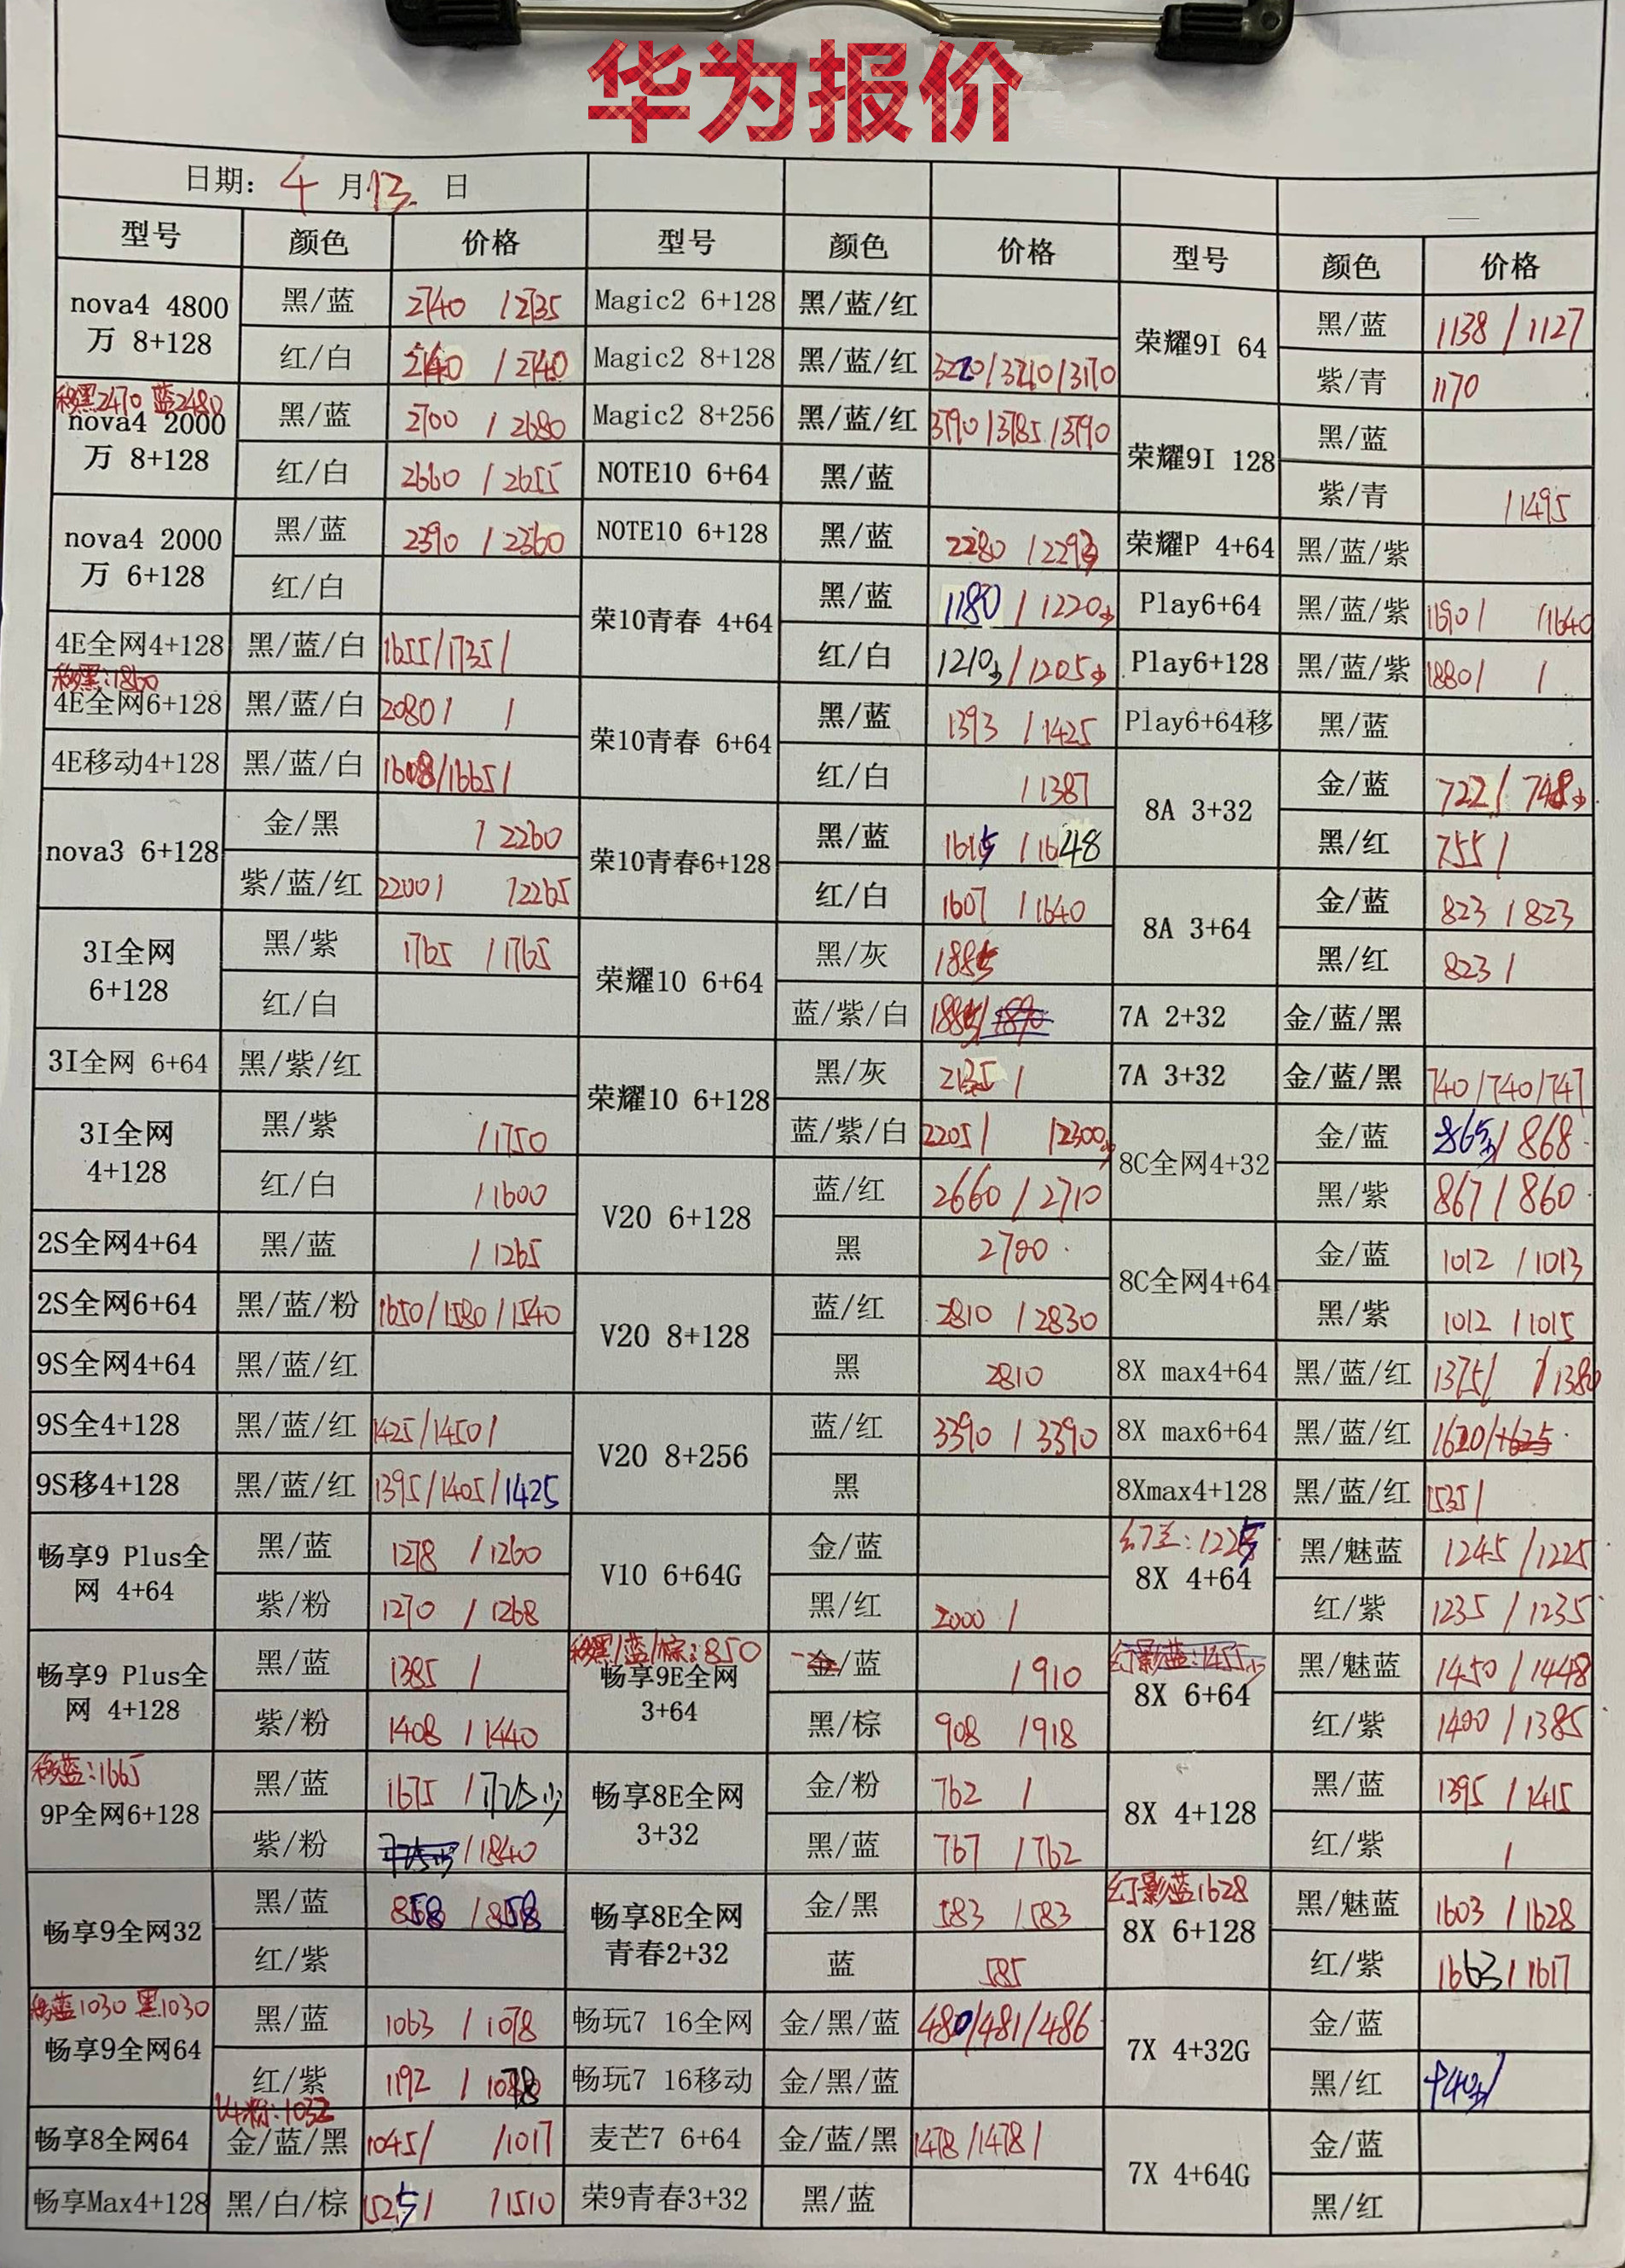 华为报价
日期: 4 月 13 日
型号 颜色 价格 型号 颜色 价格 型号 颜色 价格
nova4 4800万 8+128 黑/蓝 2740 /2735
红/白 2740 /2740
移黑2470 蓝2480
nova4 2000万 8+128 黑/蓝 2700 /2680
红/白 2660 /2655
nova4 2000万 6+128 黑/蓝 2390 /2360
红/白
4E全网4+128 黑/蓝/白 1655/1735/
移黑:1860
4E全网6+128 黑/蓝/白 2080/ /
4E移动4+128 黑/蓝/白 1608/1665/
nova3 6+128 金/黑 /2260
紫/蓝/红 2200/ /2265
3I全网 6+128 黑/紫 1765 /1765
红/白
3I全网 6+64 黑/紫/红
3I全网 4+128 黑/紫 /1750
红/白 /1600
2S全网4+64 黑/蓝 /1265
2S全网6+64 黑/蓝/粉 1650/1580/1540
9S全网4+64 黑/蓝/红
9S全4+128 黑/蓝/红 1425/1450/
9S移4+128 黑/蓝/红 1395/1405/1425
畅享9 Plus全网 4+64 黑/蓝 1278 /1260
紫/粉 1270 /1268
畅享9 Plus全网 4+128 黑/蓝 1385 /
紫/粉 1408 /1440
移蓝:1665
9P全网6+128 黑/蓝 1675 /1725少
紫/粉 /1840
畅享9全网32 黑/蓝 858 /858
红/紫
移蓝1030 黑1030
畅享9全网64 黑/蓝 1063 /1078
红/紫 1192 /1078
U4粉:1032
畅享8全网64 金/蓝/黑 1045/ /1017
畅享Max4+128 黑/白/棕 1525/ /1510
Magic2 6+128 黑/蓝/红
Magic2 8+128 黑/蓝/红 3220/3210/3170
Magic2 8+256 黑/蓝/红 3790/3785/3790
NOTE10 6+64 黑/蓝
NOTE10 6+128 黑/蓝 2280 /2293
荣10青春 4+64 黑/蓝 1180 /1220少
红/白 1210少/1205少
荣10青春 6+64 黑/蓝 1393 /1425
红/白 /1387
荣10青春6+128 黑/蓝 1615 /1648
红/白 1607 /1640
荣耀10 6+64 黑/灰 1885
蓝/紫/白 1885/1890
荣耀10 6+128 黑/灰 2135 /
蓝/紫/白 2205/ /2300少
V20 6+128 蓝/红 2660 /2710
黑 2700
V20 8+128 蓝/红 2810 /2830
黑 2810
V20 8+256 蓝/红 3390 /3390
黑
V10 6+64G 金/蓝
黑/红 2000 /
移黑/蓝/棕:850
畅享9E全网 3+64 金/蓝 /910
黑/棕 908 /918
畅享8E全网 3+32 金/粉 762 /
黑/蓝 767 /762
畅享8E全网青春2+32 金/黑 583 /583
蓝 585
畅玩7 16全网 金/黑/蓝 480/481/486
畅玩7 16移动 金/黑/蓝
麦芒7 6+64 金/蓝/黑 1478/1478/
荣9青春3+32 黑/蓝
荣耀9I 64 黑/蓝 1138 /1127
紫/青 1170
荣耀9I 128 黑/蓝
紫/青 /1495
荣耀P 4+64 黑/蓝/紫
Play6+64 黑/蓝/紫 1690/ /1640
Play6+128 黑/蓝/紫 1880/ /
Play6+64移 黑/蓝
8A 3+32 金/蓝 722/ 748少
黑/红 755/
8A 3+64 金/蓝 823 /823
黑/红 823 /
7A 2+32 金/蓝/黑
7A 3+32 金/蓝/黑 740/740/747
8C全网4+32 金/蓝 865少/868
黑/紫 867/860
8C全网4+64 金/蓝 1012 /1013
黑/紫 1012 /1015
8X max4+64 黑/蓝/红 1375/ /1380
8X max6+64 黑/蓝/红 1620/1625
8Xmax4+128 黑/蓝/红 1535/
8X 4+64 黑/魅蓝 1245 /1225
红/紫 1235 /1235
幻影蓝:1455少
8X 6+64 黑/魅蓝 1450/1448
红/紫 1400/1385
8X 4+128 黑/蓝 1395 /1415
红/紫 /
幻影蓝1628
8X 6+128 黑/魅蓝 1603 /1628
红/紫 1663/1617
7X 4+32G 金/蓝
黑/红 940少/
7X 4+64G 金/蓝
黑/红